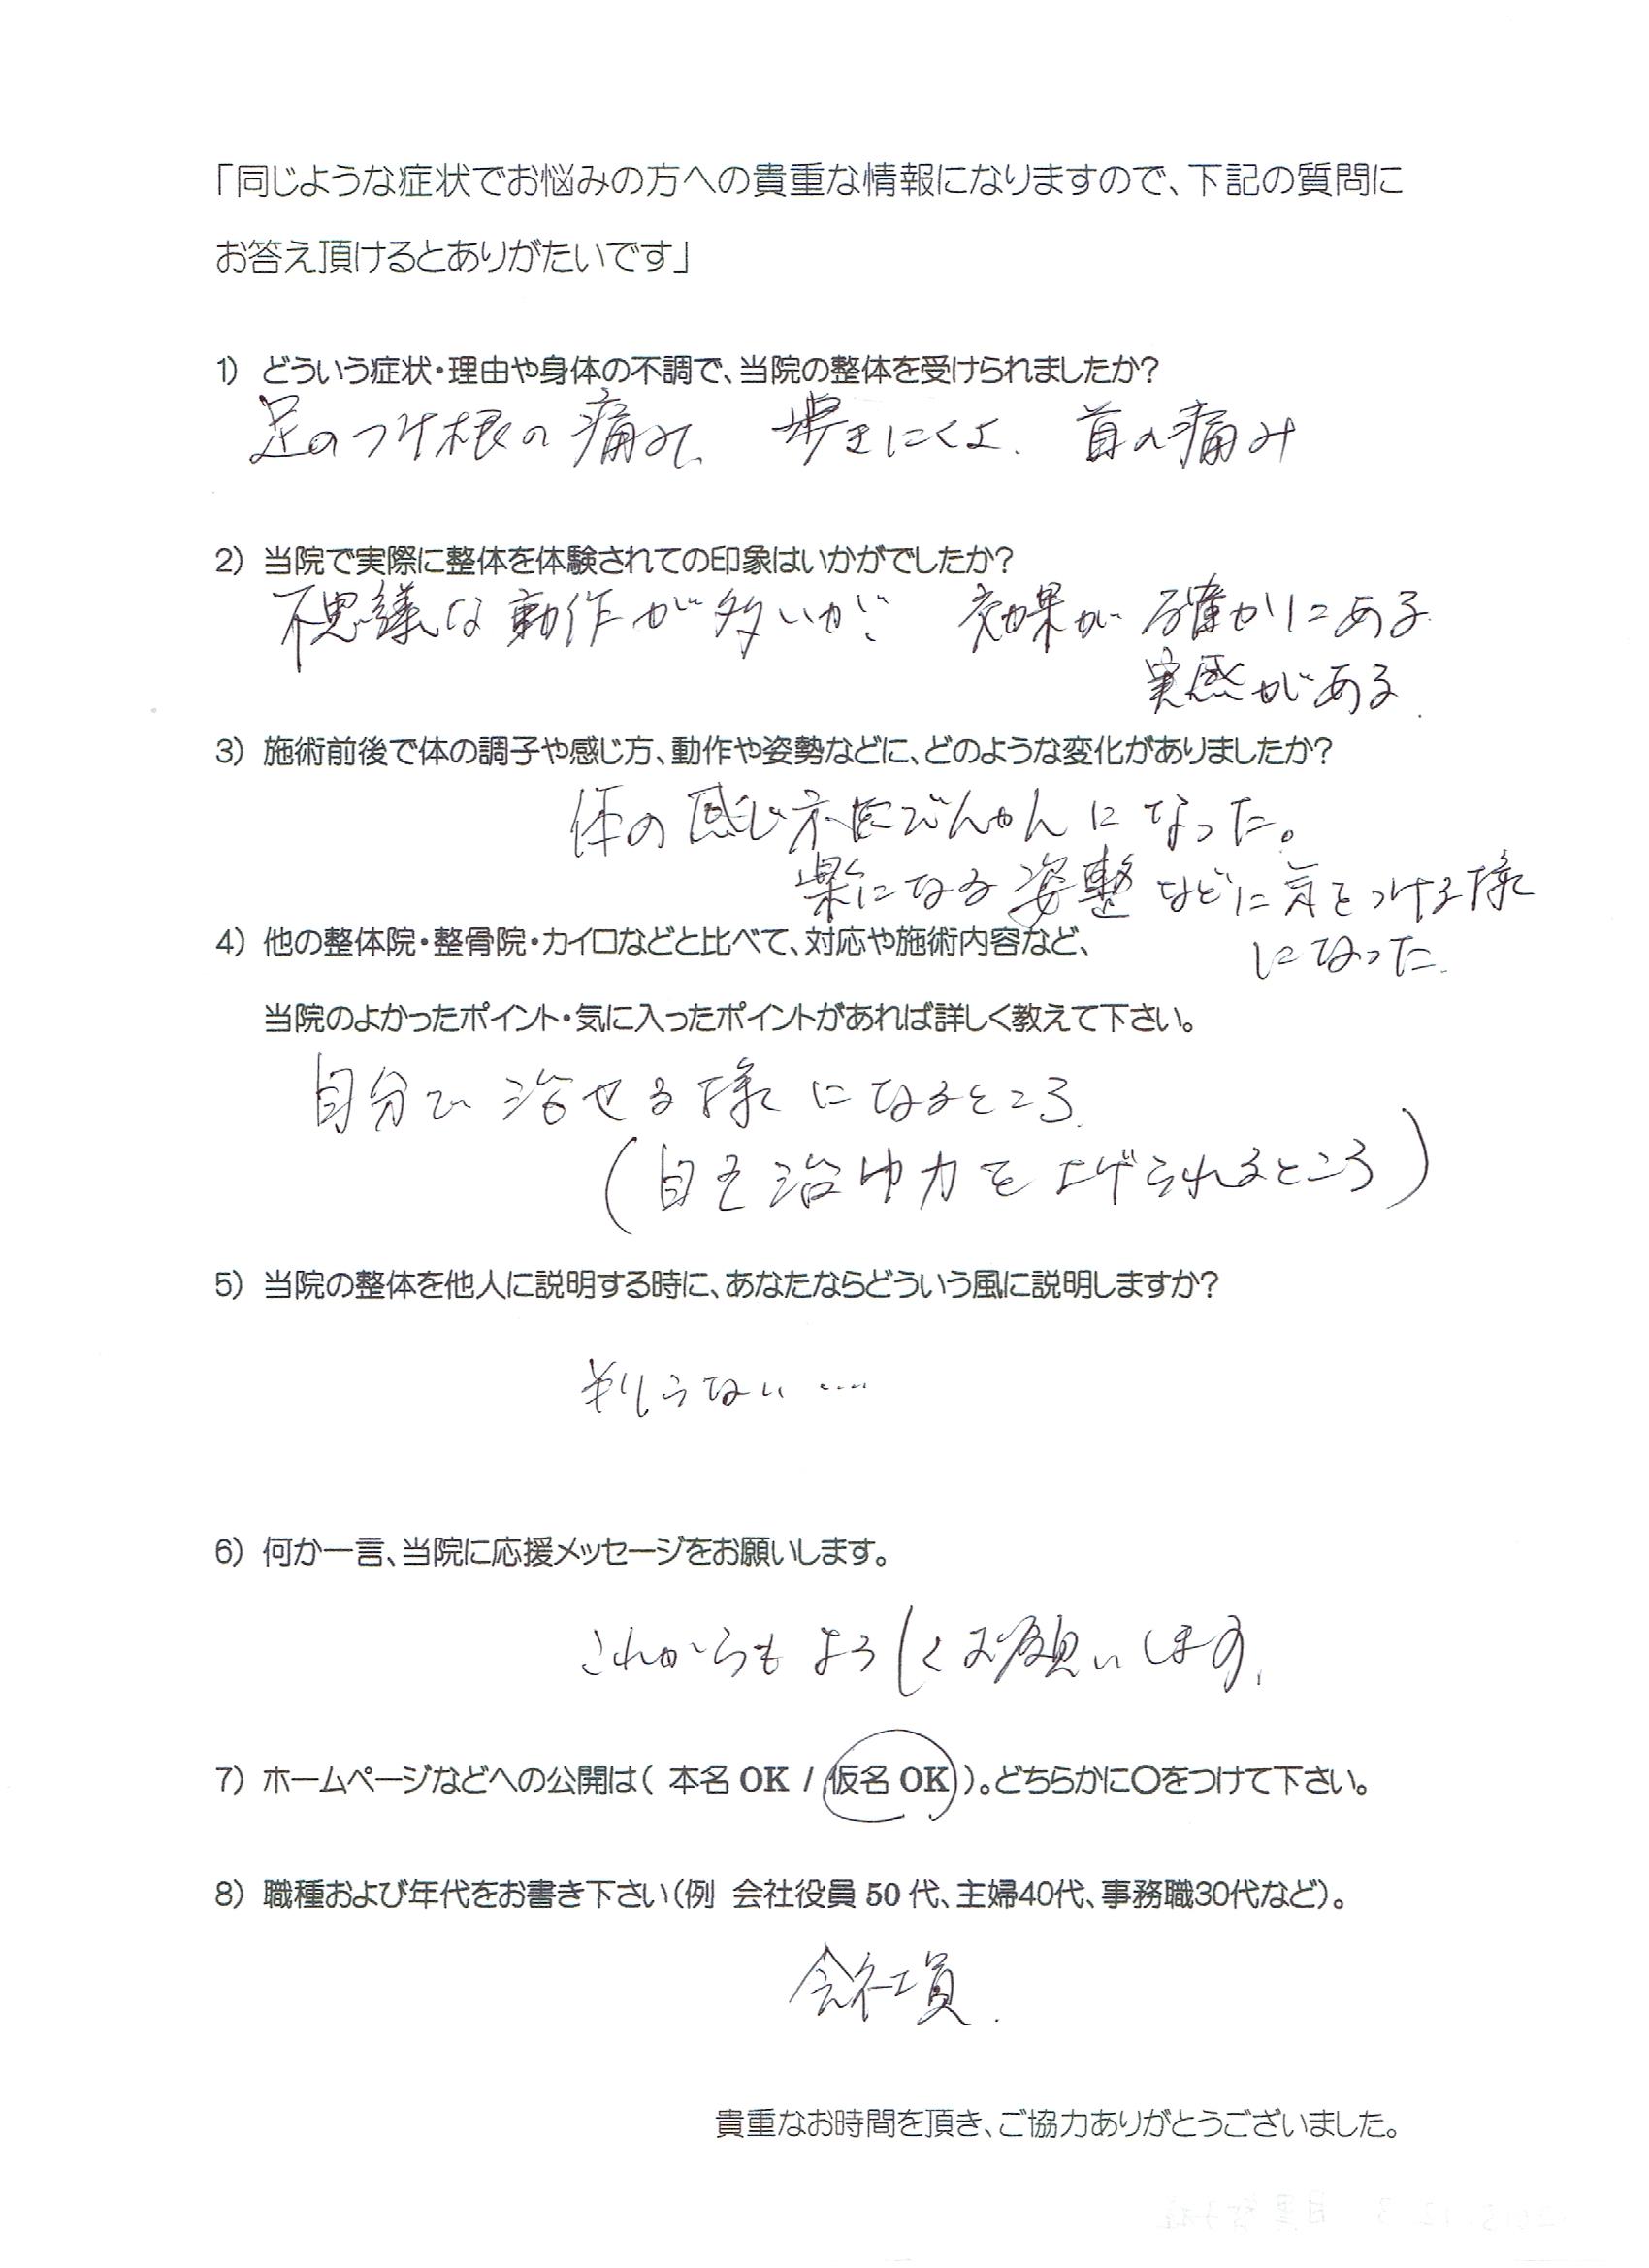 「同じような症状でお悩みの方への貴重な情報になりますので、下記の質問に
お答え頂けるとありがたいです」
1） どういう症状・理由や身体の不調で、当院の整体を受けられましたか？
足のつけ根の痛み、 歩きにくさ、 首の痛み
2） 当院で実際に整体を体験されての印象はいかがでしたか？
不思議な動作が多いが、 効果が確かにある
実感がある.
3） 施術前後で体の調子や感じ方、動作や姿勢などに、どのような変化がありましたか？
体の感じ方にびんかんになった。
楽になる姿整などに気をつける様
になった.
4） 他の整体院・整骨院・カイロなどと比べて、対応や施術内容など、
当院のよかったポイント・気に入ったポイントがあれば詳しく教えて下さい。
自分で治せる様になるところ.
（自 治ゆ力を上げられるところ）
5） 当院の整体を他人に説明する時に、あなたならどういう風に説明しますか？
判らない ....
6） 何か一言、当院に応援メッセージをお願いします。
これからもよろしくお願いします.
7） ホームページなどへの公開は（ 本名 OK / 仮名 OK ）。どちらかに〇をつけて下さい。
8） 職種および年代をお書き下さい（例 会社役員 50 代、主婦40代、事務職30代など）。
会社員.
貴重なお時間を頂き、ご協力ありがとうございました。